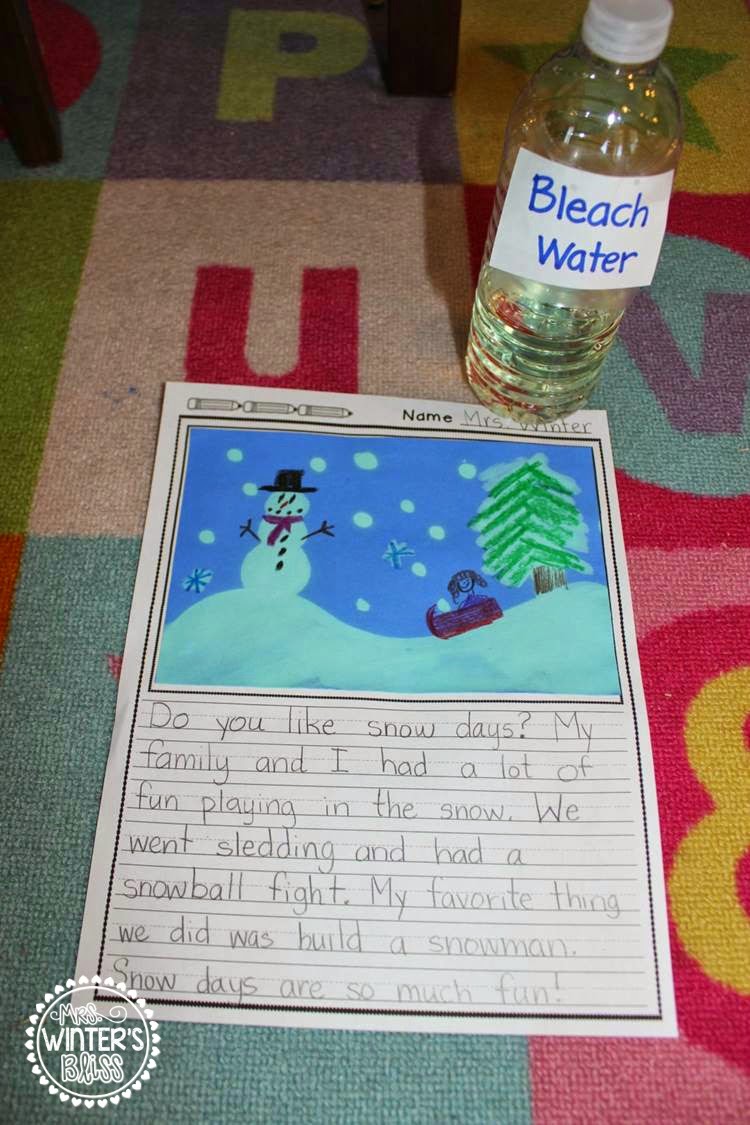 P
Bleach
Water
U
V
Name Mrs. Winter
Do you like snow days? My
family and I had a lot of
fun playing in the snow. We
went sledding and had a
snowball fight. My favorite thing
we did was build a snowman.
Snow days are so much fun!
8
MRS.
WINTER'S
Bliss